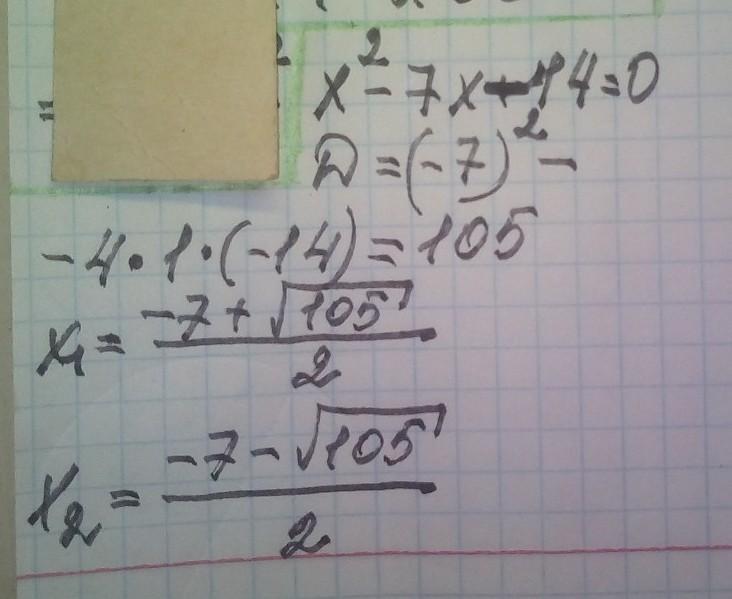 x² - 7x - 14 = 0
D = (-7)² -
- 4 · 1 · (-14) = 105
x₁ = (-7 + √105) / 2
x₂ = (-7 - √105) / 2